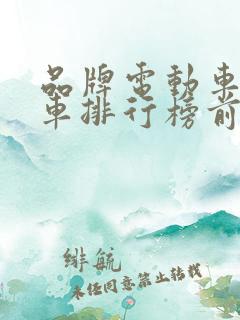 品牌電動車
車排行榜前
緋航
未经同意禁止转载